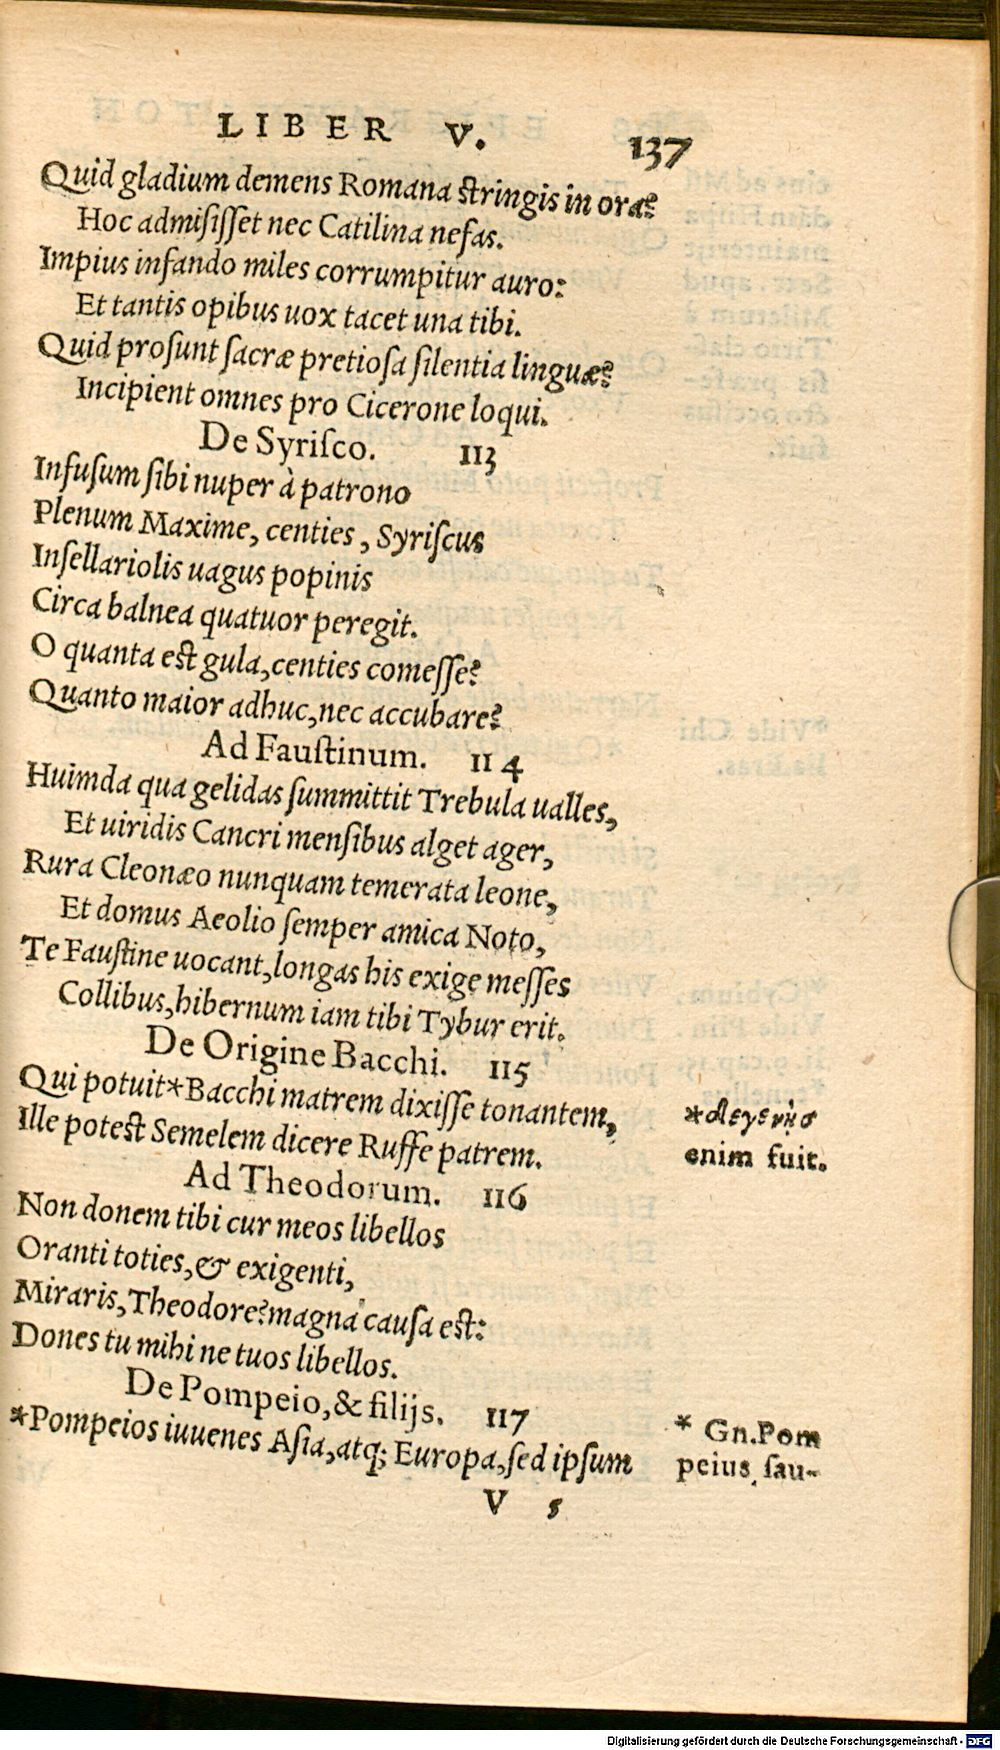 LIBER V. 137
Quid gladium demens Romana stringis in ora?
Hoc admisiſſet nec Catilina nefas.
Impius infando miles corrumpitur auro:
Et tantis opibus uox tacet una tibi.
Quid proſunt ſacræ pretioſa ſilentia linguæ?
Incipient omnes pro Cicerone loqui.
De Syriſco. 113
Infuſum ſibi nuper à patrono
Plenum Maxime, centies, Syriſcus
Inſellariolis uagus popinis
Circa balnea quatuor peregit.
O quanta est gula, centies comeſſe?
Quanto maior adhuc, nec accubare?
Ad Fauſtinum. 114
Huimda qua gelidas ſummittit Trebula ualles,
Et uiridis Cancri menſibus alget ager,
Rura Cleonæo nunquam temerata leone,
Et domus Aeolio ſemper amica Noto,
Te Fauſtine uocant, longas his exige meſſes
Collibus, hibernum iam tibi Tybur erit.
De Origine Bacchi. 115
Qui potuit *Bacchi matrem dixiſſe tonantem,
Ille potest Semelem dicere Ruffe patrem.
*διγενὴς
enim fuit.
Ad Theodorum. 116
Non donem tibi cur meos libellos
Oranti toties, & exigenti,
Miraris, Theodore? magna cauſa est:
Dones tu mihi ne tuos libellos.
De Pompeio, & filijs. 117
*Pompeios iuuenes Aſia, atq; Europa, ſed ipſum
* Gn. Pom
peius ſau-
V 5
Digitalisierung gefördert durch die Deutsche Forschungsgemeinschaft - DFG